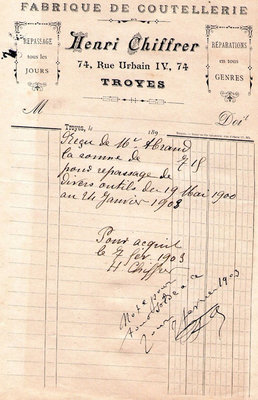 FABRIQUE DE COUTELLERIE
REPASSAGE
tous les
JOURS
Henri Chiffrer
74, Rue Urbain IV, 74
TROYES
RÉPARATIONS
en tous
GENRES
M
Doit
Troyes, le 189
Reçu de Mr
la somme de 7 15
pour repassage de
divers outils du 19 Mai 1900
au 24 Janvier 1903
Pour acquit
le 7 fév. 1903
H Chiffrer
7 février 1903